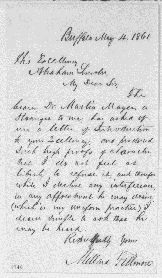 Buffalo May 4. 1861
His Excellency
Abraham Lincoln
My Dear Sir,
The
bearer Dr. Martin Mayer, a
stranger to me has asked of
me a letter of introduction
to your Excellency, and produced
such high proofs of character
that I do not feel at
liberty to refuse it, and therefore
while I decline any interference
in any appointment he may desire
(which is my uniform practice) I
desire simply to ask that he
may be heard.
Respectfully Yours
Millard Fillmore